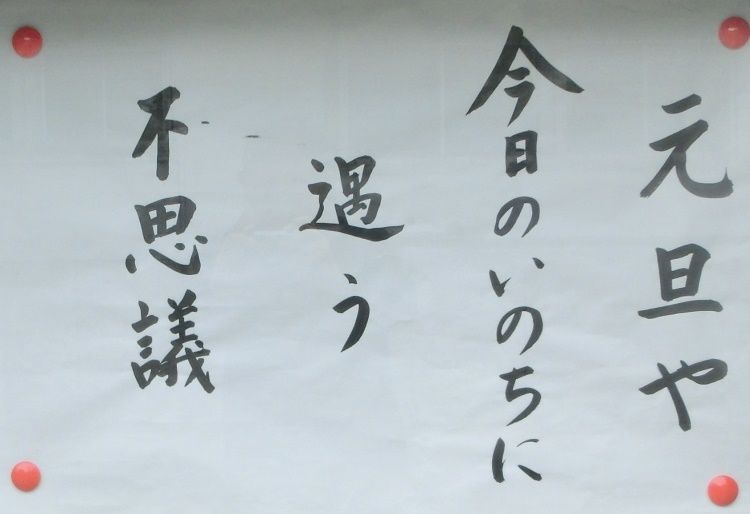 元旦や
今日のいのちに
遇う
不思議